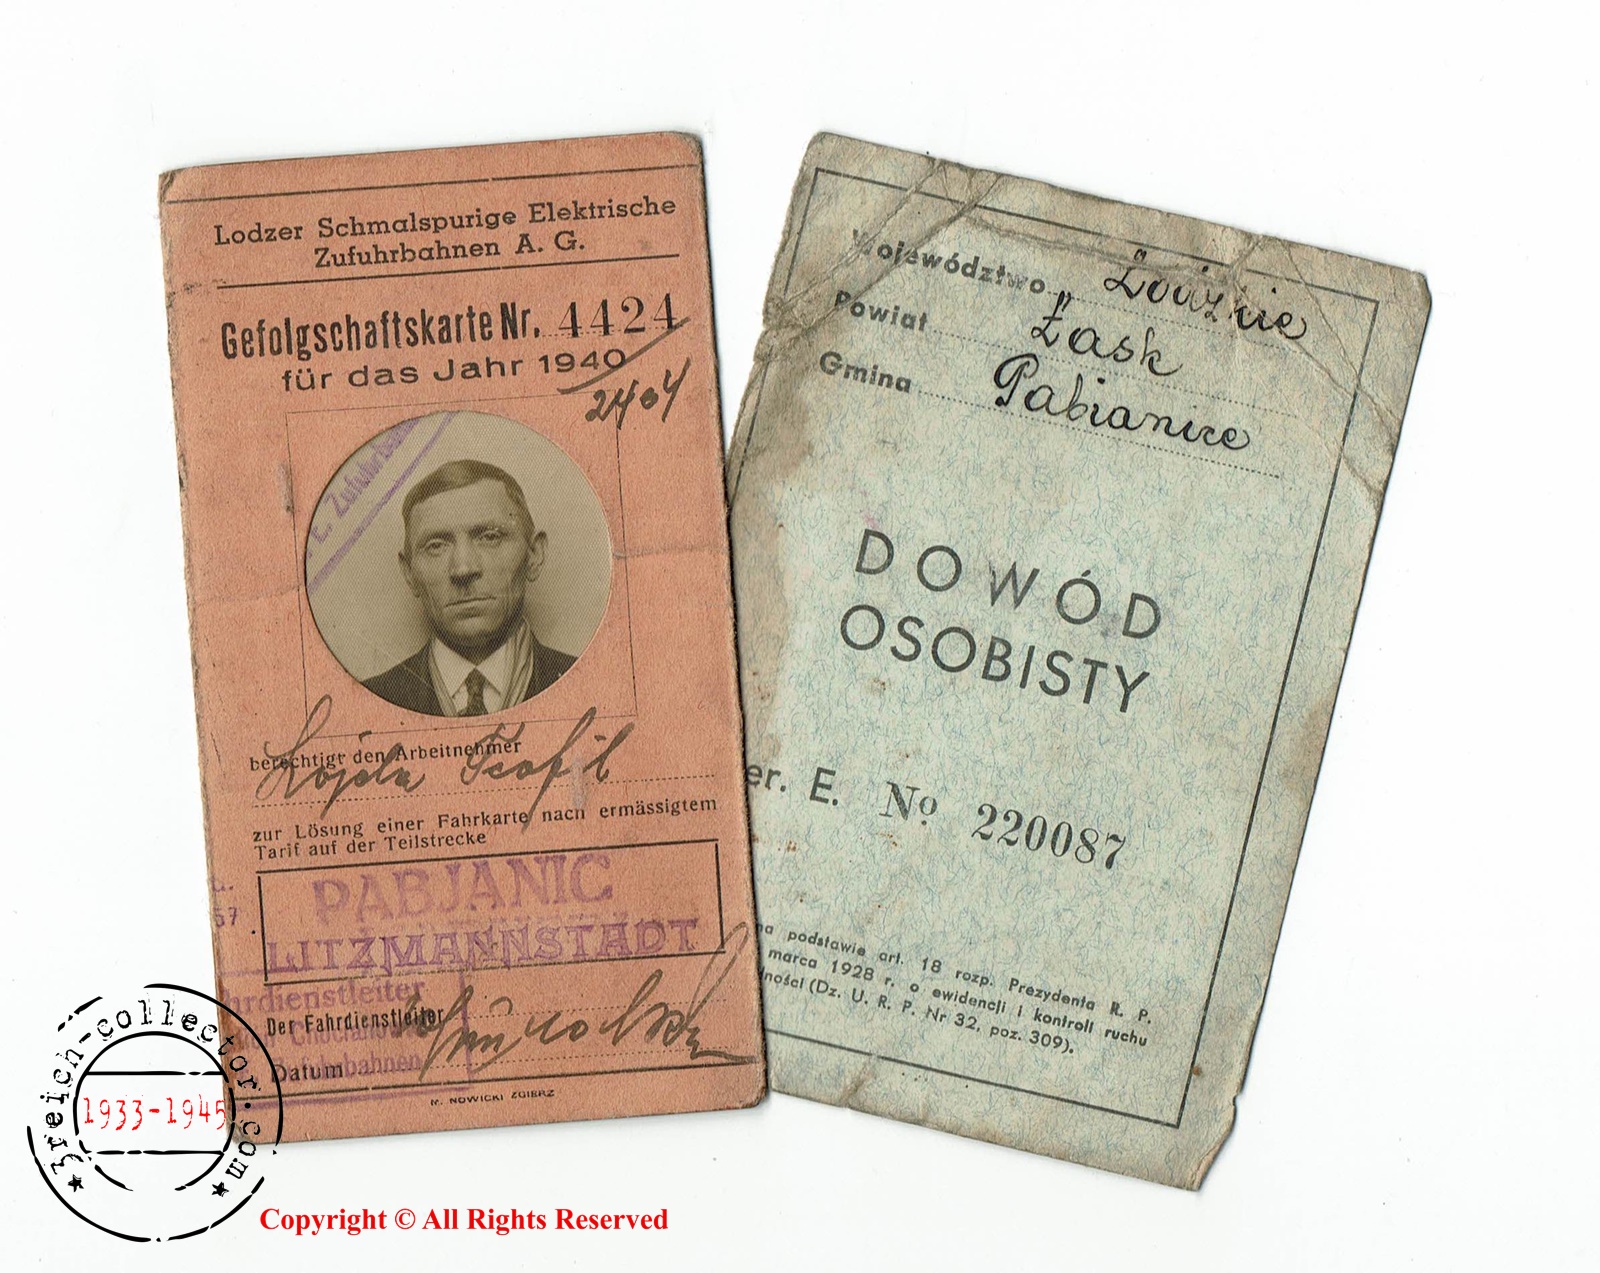 Lodzer Schmalspurige Elektrische
Zufuhrbahnen A. G.
Gefolgschaftskarte Nr. 4424
für das Jahr 1940
2404
berechtigt den Arbeitnehmer
Teofil
zur Lösung einer Fahrkarte nach ermässigtem
Tarif auf der Teilstrecke
PABJANIC
LITZMANNSTADT
57
Fahrdienstleiter
Der Fahrdienstleiter
Datum
Zufuhrbahnen
M. NOWICKI ZGIERZ
Województwo Łódzkie
Powiat Łask
Gmina Pabianice
DOWÓD
OSOBISTY
er. E. № 220087
na podstawie art. 18 rozp. Prezydenta R. P.
marca 1928 r. o ewidencji i kontroli ruchu
ności (Dz. U. R. P. Nr 32, poz. 309).
3reich-collector.com
1933-1945
Copyright © All Rights Reserved